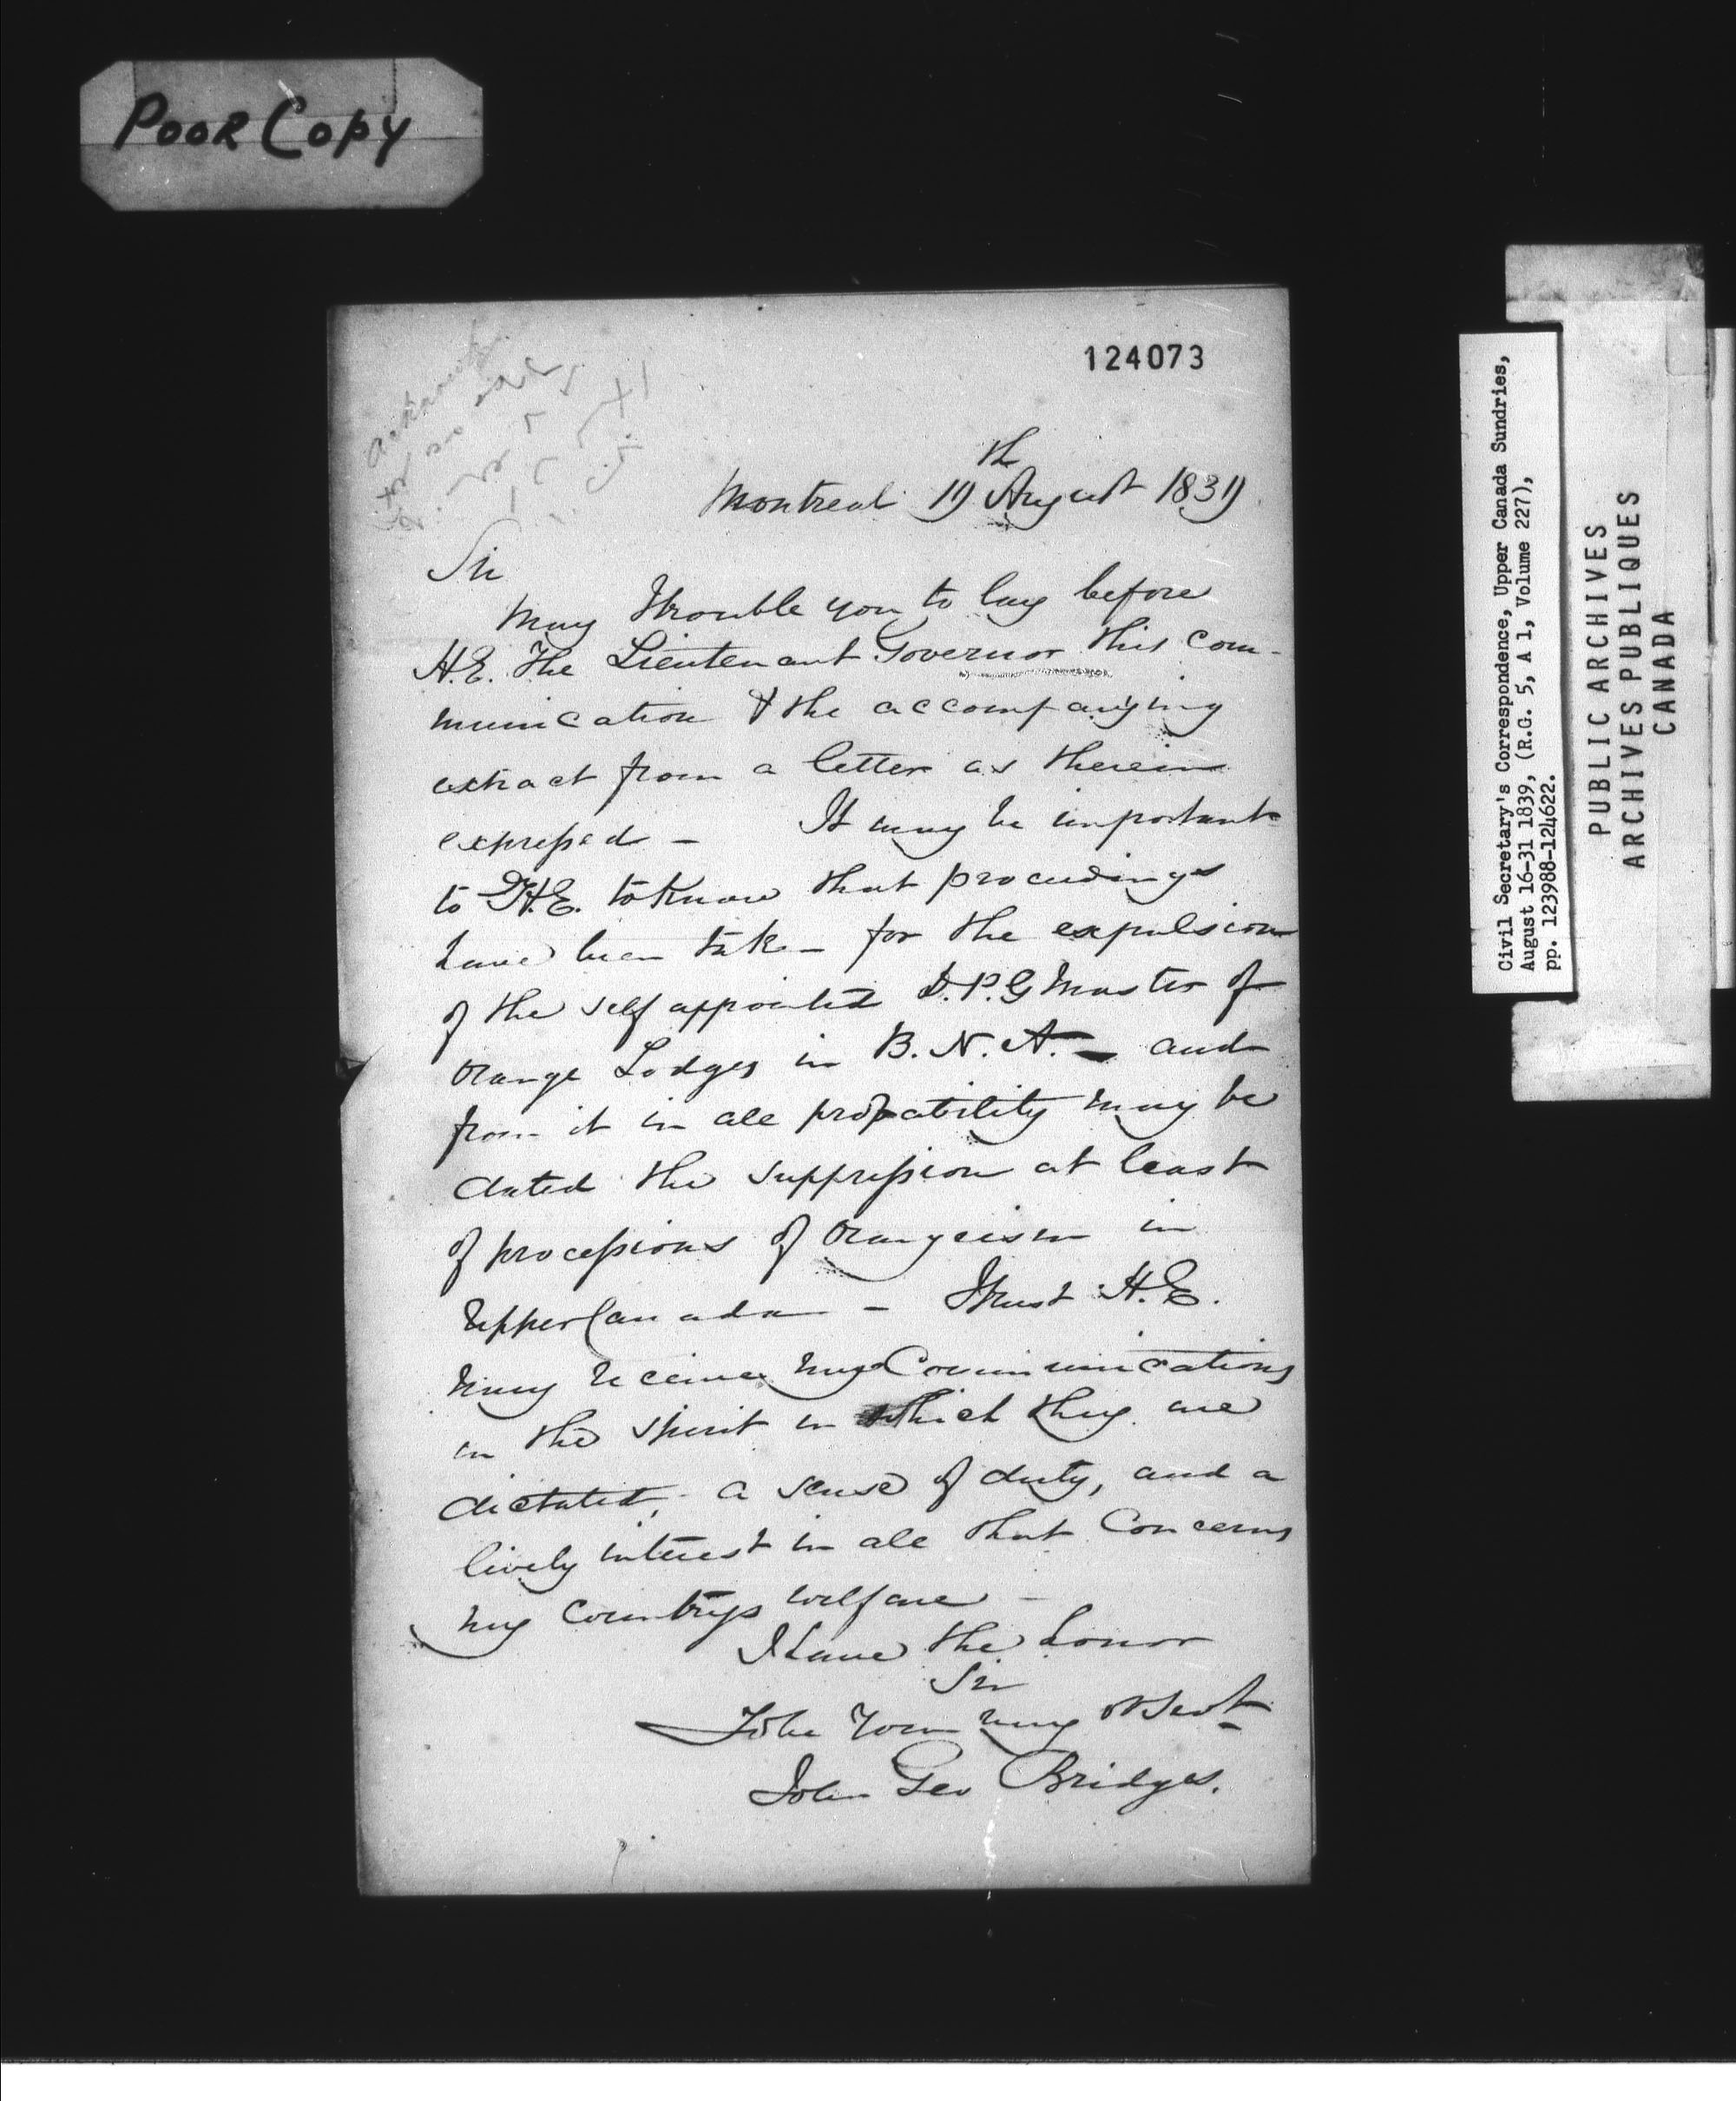 Poor Copy
124073
Montreal 19th August 1839
Sir
May I trouble you to lay before
H.E. The Lieutenant Governor this com-
munication & the accompanying
extract from a letter as therein
expressed - It may be important
to H.E. to know that proceedings
have been taken for the expulsion
of the self appointed D.P.G Master of
Orange Lodges in B.N.A. - and
from it in all probability may be
dated the suppression at least
of processions of Orangeism in
Upper Canada - I trust H.E.
may receive my Communications
in the spirit in which they are
dictated, a sense of duty, and a
lively interest in all that Concerns
my Countrys welfare -
I have the honor
Sir
To be Your
John Geo Bridges.
Civil Secretary's Correspondence, Upper Canada Sundries,
August 16-31 1839, (R.G. 5, A 1, Volume 227),
pp. 123988-124622.
PUBLIC ARCHIVES
ARCHIVES PUBLIQUES
CANADA